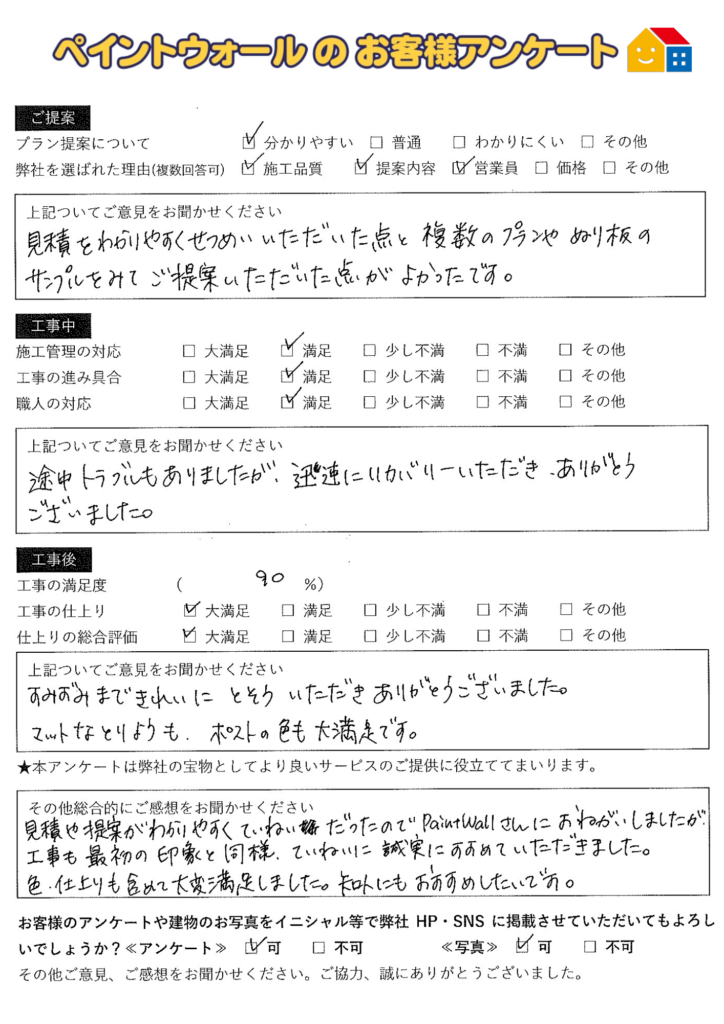 ペイントウォールのお客様アンケート
ご提案
プラン提案について ☑ 分かりやすい □ 普通 □ わかりにくい □ その他
弊社を選ばれた理由(複数回答可) ☑ 施工品質 ☑ 提案内容 ☑ 営業員 □ 価格 □ その他
上記ついてご意見をお聞かせください
見積をわかりやすくせつめいいただいた点と複数のプランや ぬり板の
サンプルをみて ご提案いただいた点が よかったです。
工事中
施工管理の対応 □ 大満足 ☑ 満足 □ 少し不満 □ 不満 □ その他
工事の進み具合 □ 大満足 ☑ 満足 □ 少し不満 □ 不満 □ その他
職人の対応 □ 大満足 ☑ 満足 □ 少し不満 □ 不満 □ その他
上記ついてご意見をお聞かせください
途中トラブルもありましたが、迅速にリカバリーいただき、ありがとう
ございました。
工事後
工事の満足度 ( 90 %)
工事の仕上り ☑ 大満足 □ 満足 □ 少し不満 □ 不満 □ その他
仕上りの総合評価 ☑ 大満足 □ 満足 □ 少し不満 □ 不満 □ その他
上記ついてご意見をお聞かせください
すみずみまできれいに とそう いただき ありがとうございました。
マットなとりよう も、ポストの色も大満足です。
★本アンケートは弊社の宝物としてより良いサービスのご提供に役立ててまいります。
その他総合的にご感想をお聞かせください
見積や提案がわかりやすく ていねい だったので PaintWallさんに おねがいしましたが、
工事も最初の印象と同様、ていねいに誠実にすすめていただきました。
色、仕上りも含めて大変満足しました。 にもおすすめしたいです。
お客様のアンケートや建物のお写真をイニシャル等で弊社 HP・SNS に掲載させていただいてもよろし
いでしょうか？≪アンケート≫ ☑ 可 □ 不可 ≪写真≫ ☑ 可 □ 不可
その他ご意見、ご感想をお聞かせください。ご協力、誠にありがとうございました。